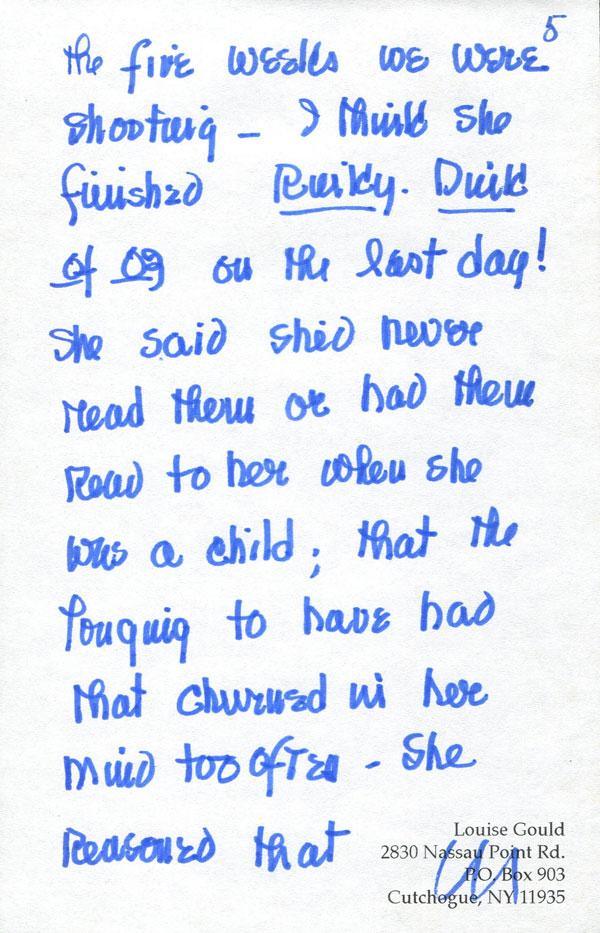 5
the five weeks we were
shooting – I think she
finished Rinky. Dink
of Oz on the last day!
She said she'd never
read them or had them
read to her when she
was a child; that the
longing to have had
that churned in her
mind too often – She
reasoned that
Louise Gould
2830 Nassau Point Rd.
P.O. Box 903
Cutchogue, NY 11935